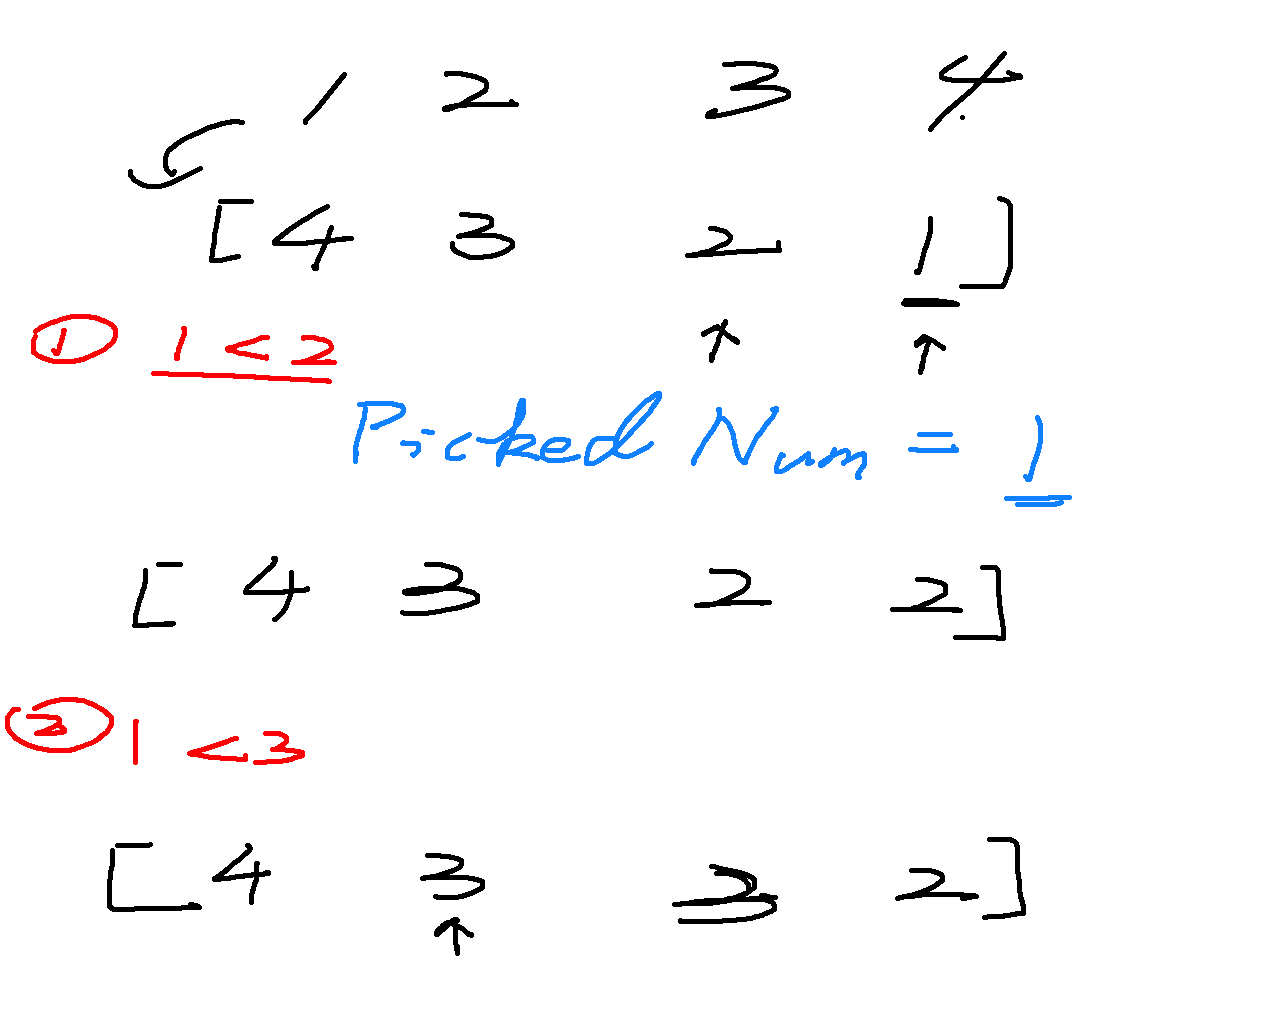 1 2 3 4
[ 4 3 2 1 ]
① 1 < 2
Picked Num = 1
[ 4 3 2 2 ]
② 1 < 3
[ 4 3 3 2 ]